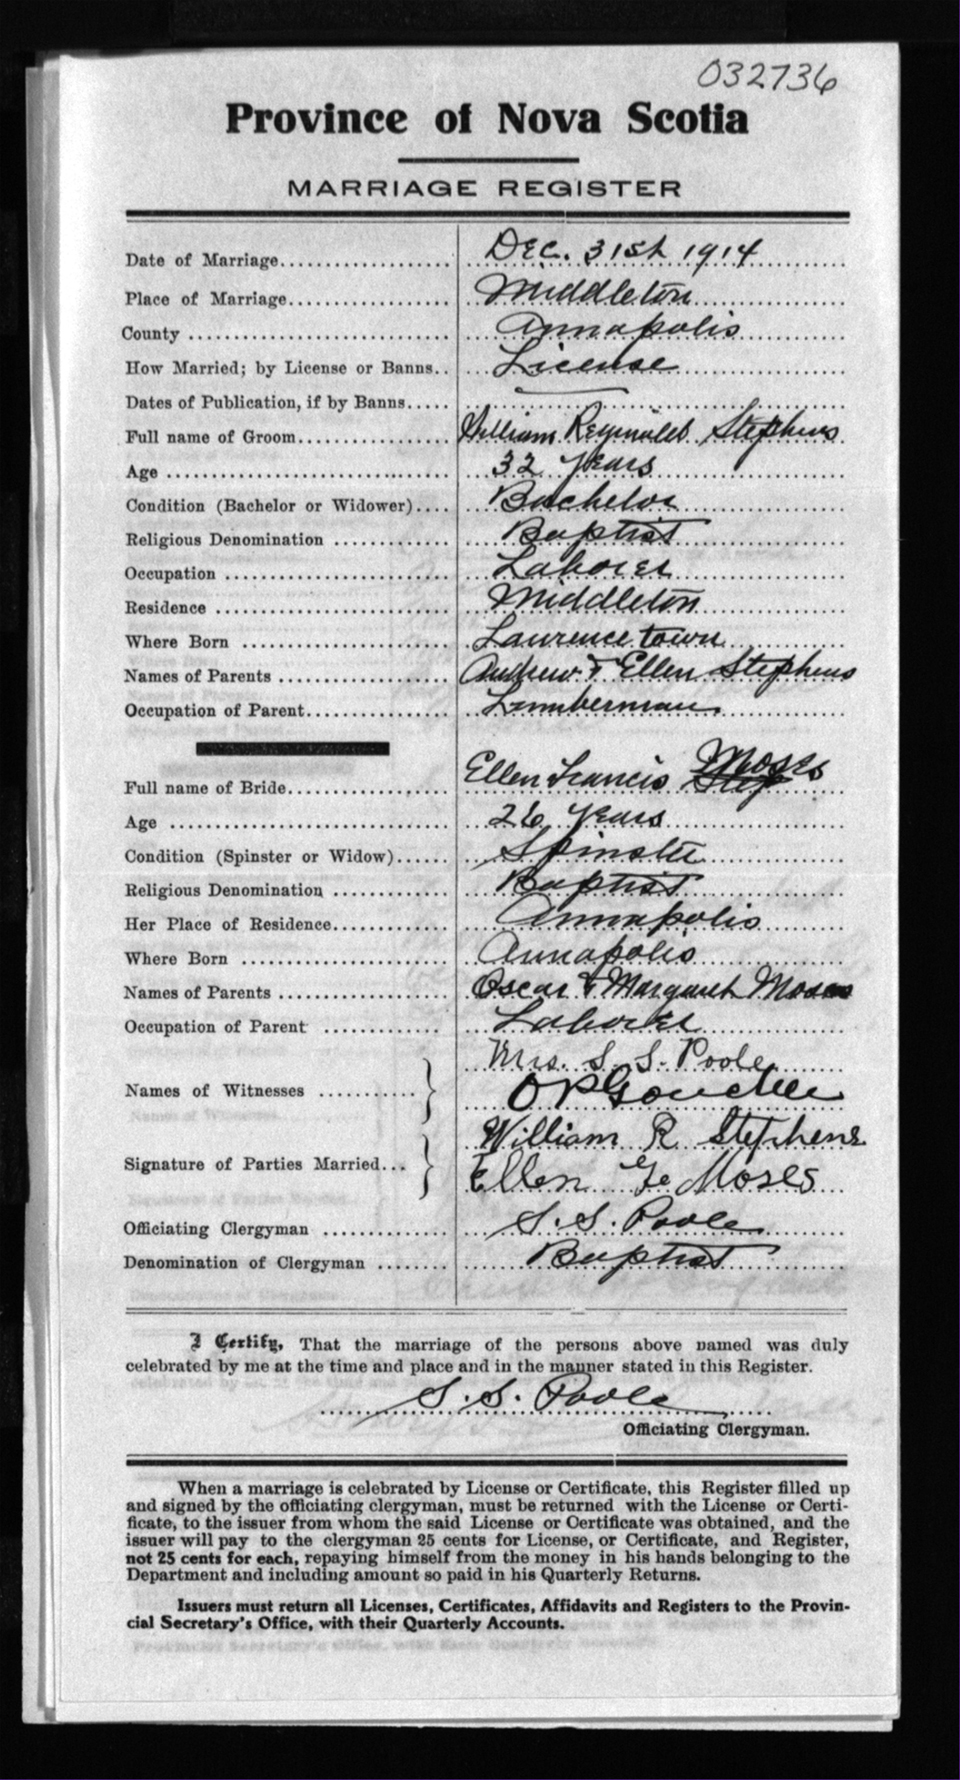 032736
Province of Nova Scotia
MARRIAGE REGISTER
Date of Marriage.................... Dec. 31st 1914
Place of Marriage................... Middleton
County ............................. Annapolis
How Married; by License or Banns.. License
Dates of Publication, if by Banns.....
Full name of Groom.................. William Reginald Stephens
Age ................................ 32 years
Condition (Bachelor or Widower).... Bachelor
Religious Denomination ............. Baptist
Occupation ......................... Laborer
Residence .......................... Middleton
Where Born ......................... Lawrencetown
Names of Parents ................... Andrew & Ellen Stephens
Occupation of Parent................ Lumberman
Full name of Bride.................. Ellen Francis Step Moses
Age ................................ 26 years
Condition (Spinster or Widow)...... Spinster
Religious Denomination ............. Baptist
Her Place of Residence.............. Annapolis
Where Born ......................... Annapolis
Names of Parents ................... Oscar & Margaret Moses
Occupation of Parent ............... Laborer
Names of Witnesses ........... } Mrs. S. S. Poole
O P Goucher
Signature of Parties Married... } William R Stephens
Ellen Moses
Officiating Clergyman .............. S. S. Poole
Denomination of Clergyman .......... Baptist
I Certify, That the marriage of the persons above named was duly
celebrated by me at the time and place and in the manner stated in this Register.
S. S. Poole
Officiating Clergyman.
When a marriage is celebrated by License or Certificate, this Register filled up
and signed by the officiating clergyman, must be returned with the License or Certi-
ficate, to the issuer from whom the said License or Certificate was obtained, and the
issuer will pay to the clergyman 25 cents for License, or Certificate, and Register,
not 25 cents for each, repaying himself from the money in his hands belonging to the
Department and including amount so paid in his Quarterly Returns.
Issuers must return all Licenses, Certificates, Affidavits and Registers to the Provin-
cial Secretary's Office, with their Quarterly Accounts.